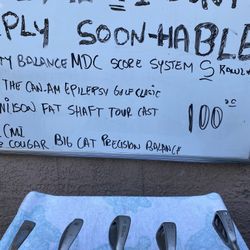 PLY SOON-HABLE
TY BALANCE MDC SCORE SYSTEM S
THE CAN-AM EPILEPSY GOLF CLASSIC
WILSON FAT SHAFT TOUR CAST 100
CMI
COUGAR BIG CAT PRECISION BALANCE